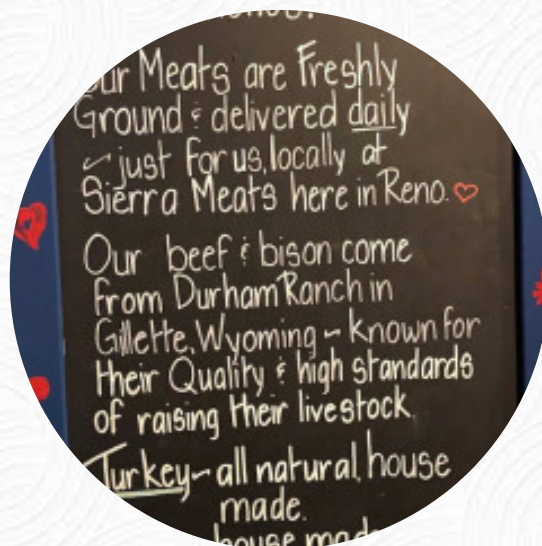 Our Meats are Freshly
Ground & delivered daily
~ just for us, locally at
Sierra Meats here in Reno.
Our beef & bison come
from Durham Ranch in
Gillette, Wyoming ~ known for
their Quality & high standards
of raising their livestock.
Turkey ~ all natural, house
made.
house made